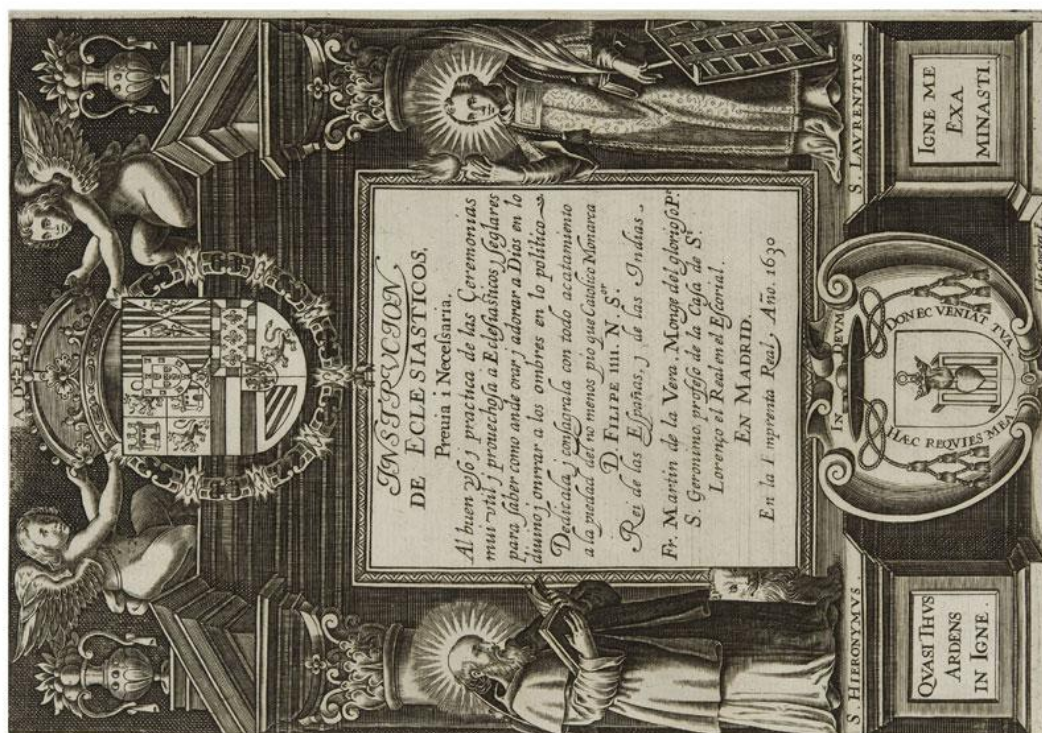 A DEO
INSTRVCION
DE ECLESIASTICOS,
Preuia i Necessaria.
Al buen vso, y practica de las Ceremonias
mui vtil, y prouechosa a Eclesiasticos, y seglares
para saber como an de orar, y adorar a Dios en lo
diuino, y onrrar a los ombres en lo politico
Dedicala, y consagrala con todo acatamiento
a la piedad del no menos pio que Catolico Monarca
D. FILIPE IIII. N. Sor
Rei de las Españas, y de las Indias.
Fr. Martin de la Vera. Monge del glorioso Pe
S. Geronimo, professo de la Casa de St
Lorenço el Real en el Escorial.
EN MADRID.
En la Imprenta Real, Año. 1630
S. HIERONYMVS.
S. LAVRENTIVS.
QVASI THVS
ARDENS
IN IGNE.
IN DEVM
DONEC VENIAT TVA
HÆC REQVIES MEA
IGNE ME
EXA
MINASTI.